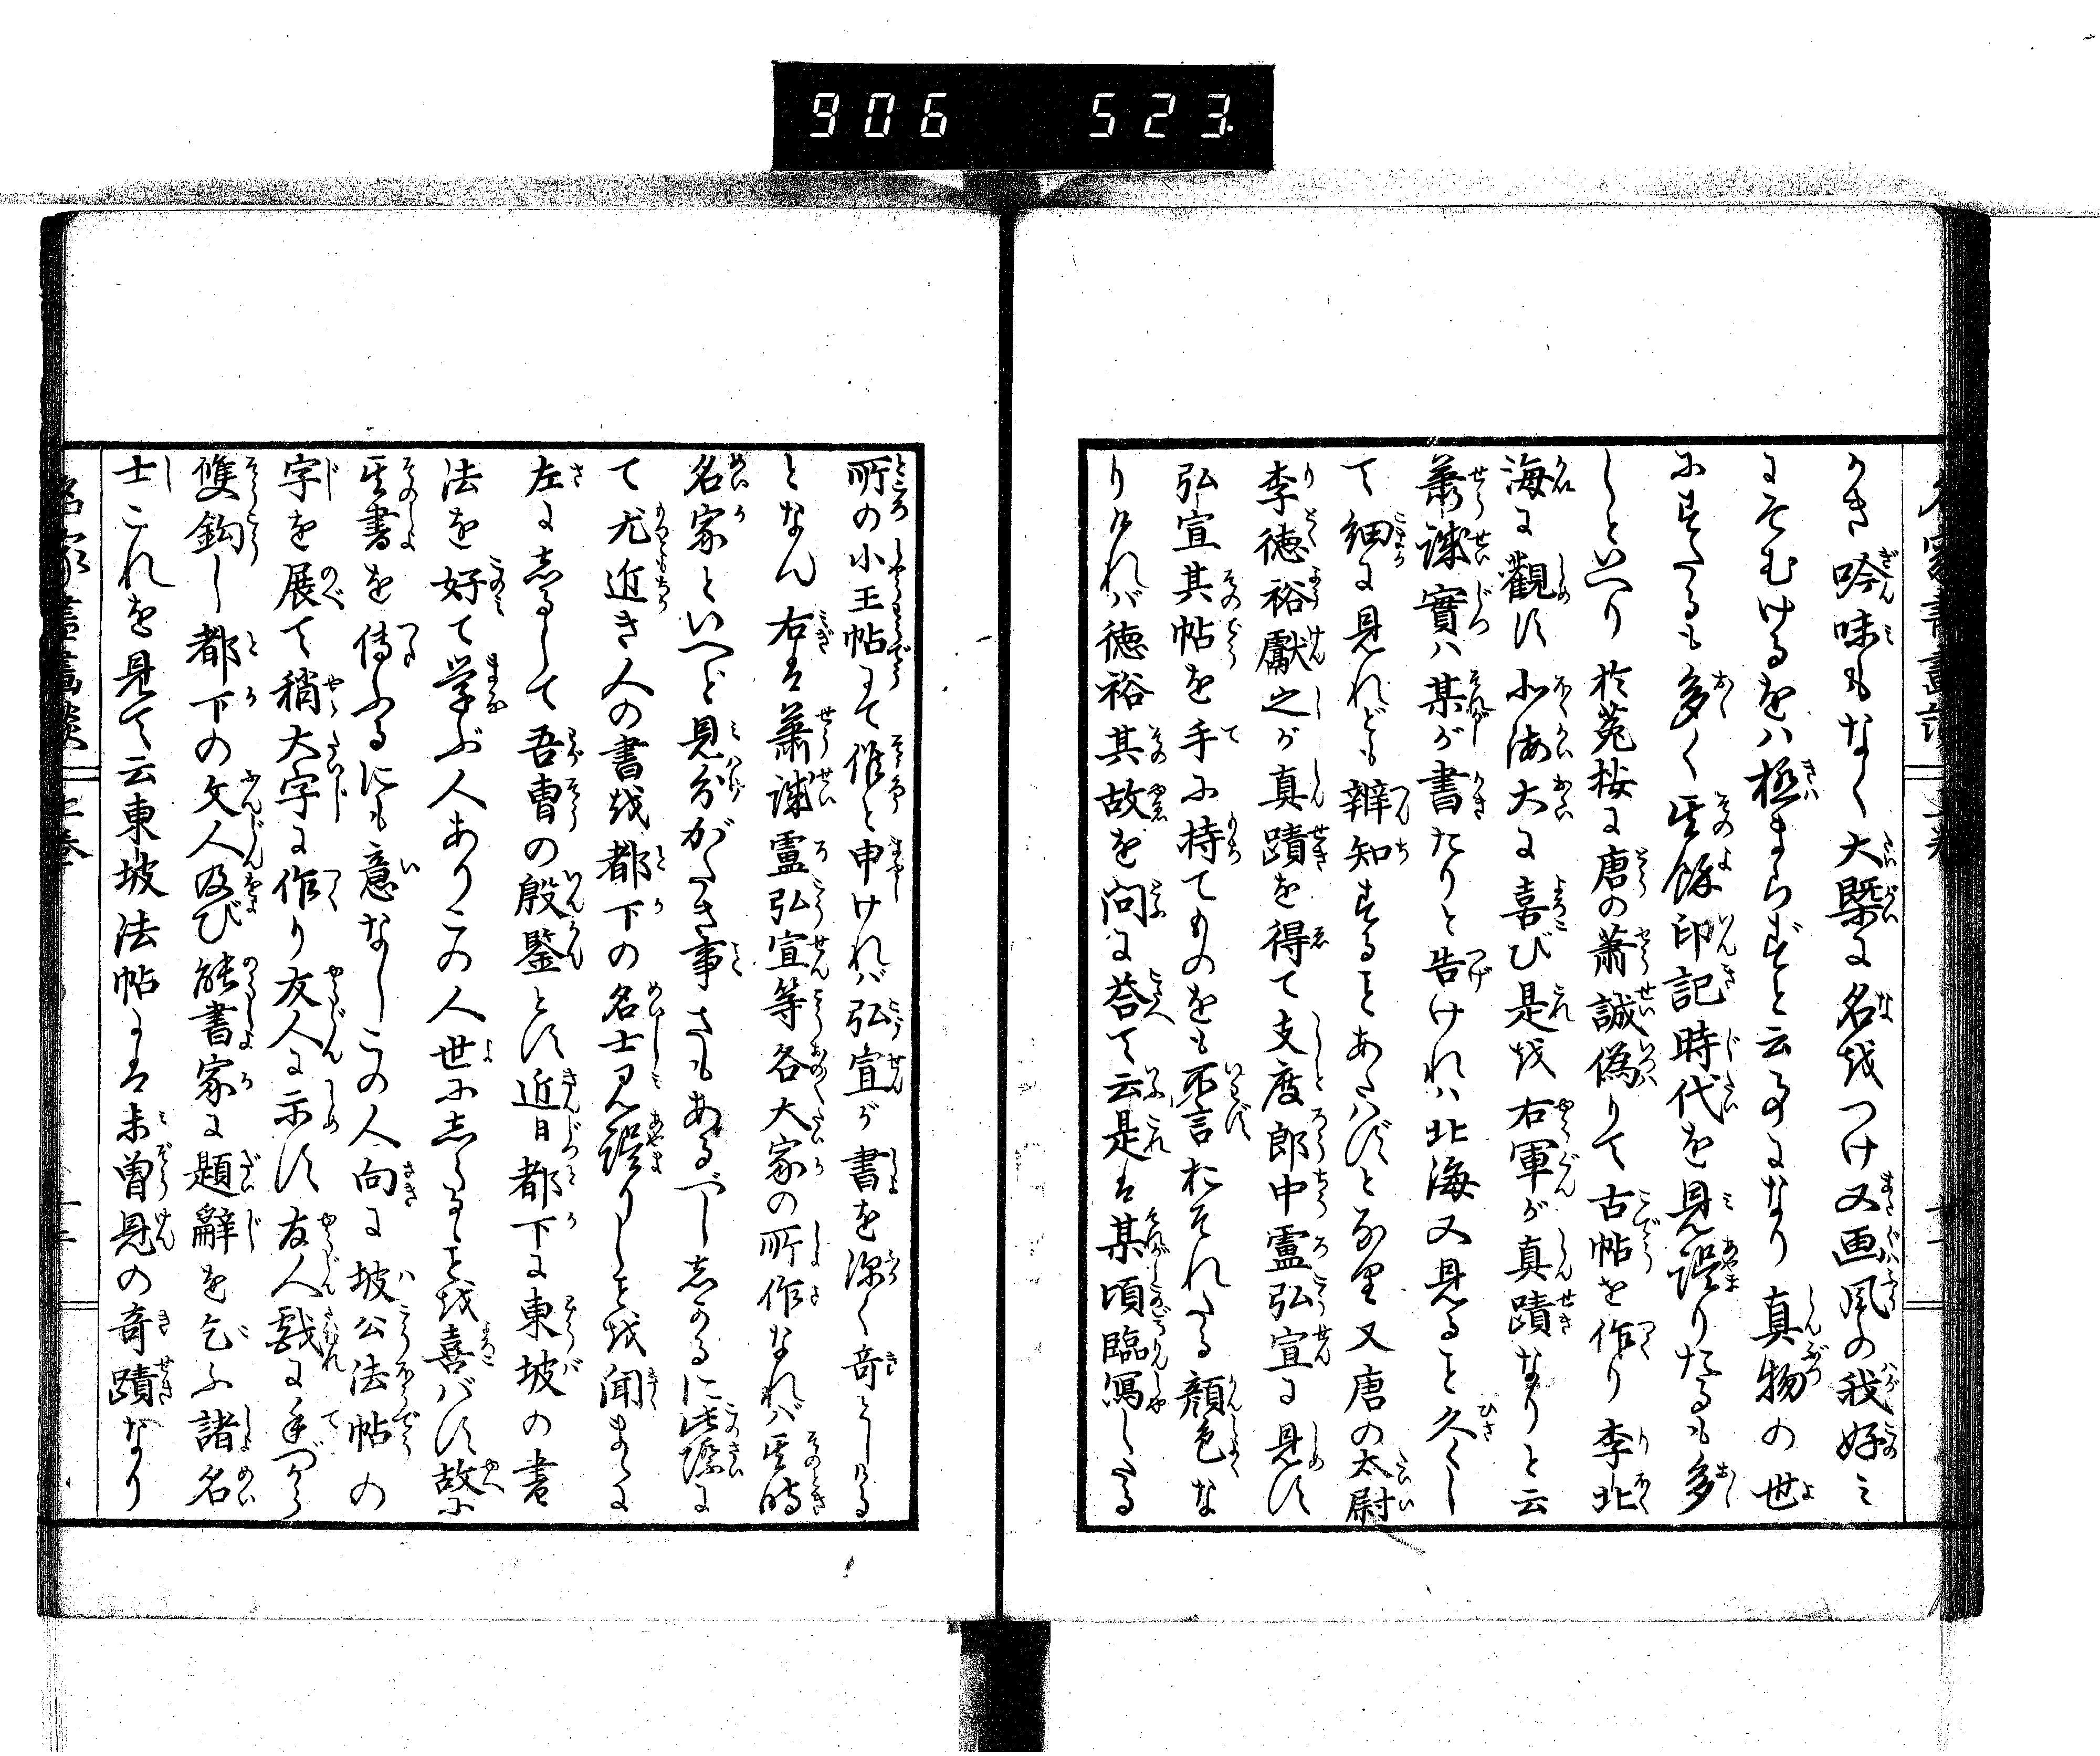 906 523
かき吟味もなく大槩に名をつけ又画風の我好ミ
にそむけるをハ極まらずと云事になり真物の世
にすたるも多く其餘印記時代を見誤りたるも多
しといへり於菟桉に唐の蕭誠偽りて古帖を作り李北
海に觀す北海大に喜び是を右軍が真蹟なりと云
蕭誠實ハ某が書たりと告けれハ北海又見ること久くし
て細に見れども辧知することあたハずとなり又唐の太尉
李徳裕獻之が真蹟を得て支度郎中盧弘宣に見す
弘宣其帖を手に持てものをも不言おそれたる顔色な
りけれバ徳裕其故を問に荅て云是ハ某頃臨寫したる
所の小王帖にて候と申けれバ弘宣が書を深く奇としける
となん右ハ蕭誠盧弘宣等各大家の所作なれバ其時
名家といへど見分がたき事さもあるべししかるに此際に
て尤近き人の書を都下の名士見誤りしを聞まゝに
左にしるして吾曹の殷鑒とす近日都下に東坡の書
法を好て学ぶ人ありこの人世にしらるゝを喜バす故に
其書を傳ふるにも意なしこの人向に坡公法帖の
字を展て稍大字に作り友人に示す友人戯に手づから
雙鈎し都下の文人及び能書家に題辭を乞ふ諸名
士これを見て云東坡法帖にハ未曽見の奇蹟なり